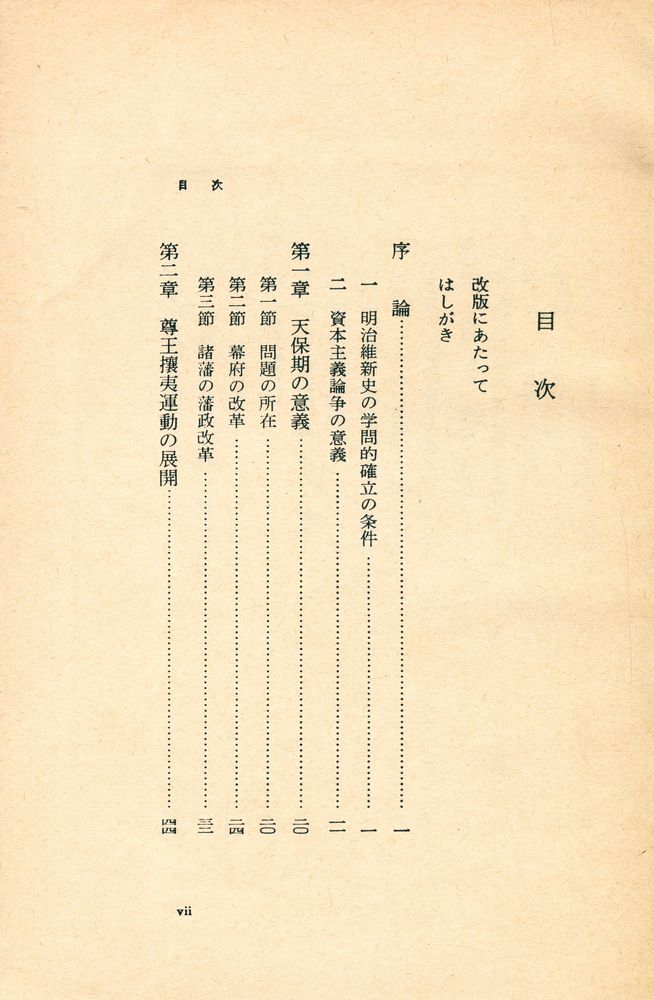 目次
目次
改版にあたって
はしがき
序論……一
一 明治維新史の学問的確立の条件……一
二 資本主義論争の意義……一一
第一章 天保期の意義……二〇
第一節 問題の所在……二〇
第二節 幕府の改革……二四
第三節 諸藩の藩政改革……三三
第二章 尊王攘夷運動の展開……四四
vii